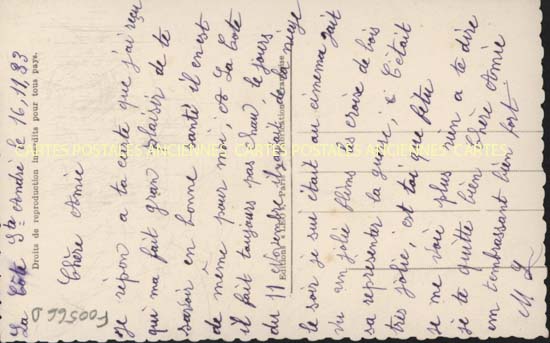 La Côte St André le 16.11.33
Chère Amie
Je répon a ta carte que j'ai reçu
qui ma fait gran plaisir de te
savoir en bonne santé il en est
de même pour moi, A La Cote
il fait toujours pas beau, le jours
du 11 Novembre il y avait de la neige
le soir je sui était au cinema jait
vu un jolie films les croix de bois
sa representer la guerre, C'était
tres jolie, est tai que fetu
je me voie plus rien a te dire
je te quitte bien chère Amie
em tembrassant bien fort
M L
Droits de reproduction interdits pour tous pays.
Editions
Fabrication Française
CARTES POSTALES ANCIENNES CARTES POSTALES ANCIENNES CARTES
F00566D